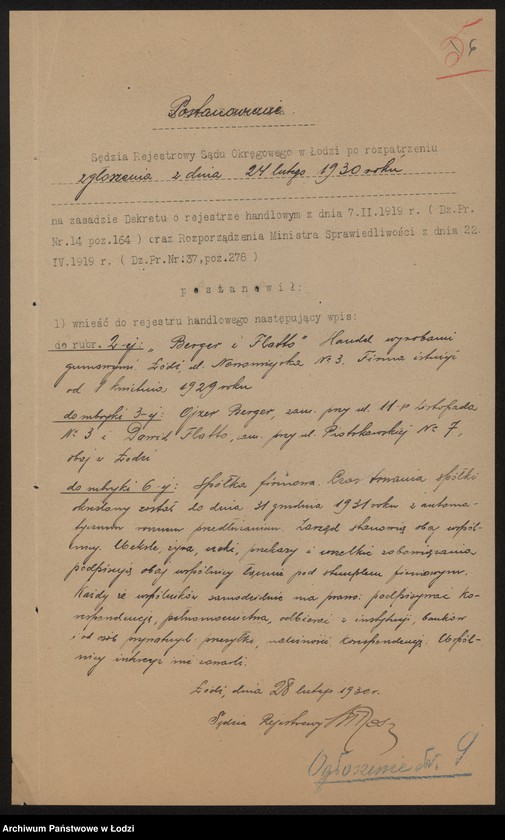 6
Postanowienie.
Sędzia Rejestrowy Sądu Okręgowego w Łodzi po rozpatrzeniu
zgłoszenia z dnia 24 lutego 1930 roku
na zasadzie Dekretu o rejestrze handlowym z dnia 7.II.1919 r. ( Dz.Pr.
Nr.14 poz.164 ) oraz Rozporządzenia Ministra Sprawiedliwości z dnia 22.
IV.1919 r. ( Dz.Pr.Nr:37,poz.278 )
p o s t a n o w i ł:
1) wnieść do rejestru handlowego następujący wpis:
do rubr. 2-ej: „Berger i Flatto" Handel wyrobami
gumowymi. Łódź, ul. Nowomiejska № 3. Firma istnieje
od 1 kwietnia 1929 roku
do rubryki 3-ej: Ojzer Berger, zam. przy ul. 11-go Listopada
№ 3 i Dawid Flatto, zam. przy ul. Piotrkowskiej № 7,
obaj w Łodzi
do rubryki 6-ej: Spółka firmowa. Czas trwania spółki
określony został do dnia 31 grudnia 1931 roku z automa-
tycznem rocznem przedłużaniem. Zarząd stanowią obaj wspól-
nicy. Weksle, żyra, czeki, przekazy i wszelkie zobowiązania
podpisują obaj wspólnicy łącznie pod stemplem firmowym.
Każdy ze wspólników samodzielnie ma prawo: podpisywać ko-
respondencję, pełnomocnictwa, odbierać z instytucji, banków
i od osób prywatnych przesyłki, należności, korespondencję. Wspól-
nicy intercyz nie zawarli.
Łódź, dnia 28 lutego 1930 r.
Sędzia Rejestrowy
Ogłoszenie str. 9
Archiwum Państwowe w Łodzi